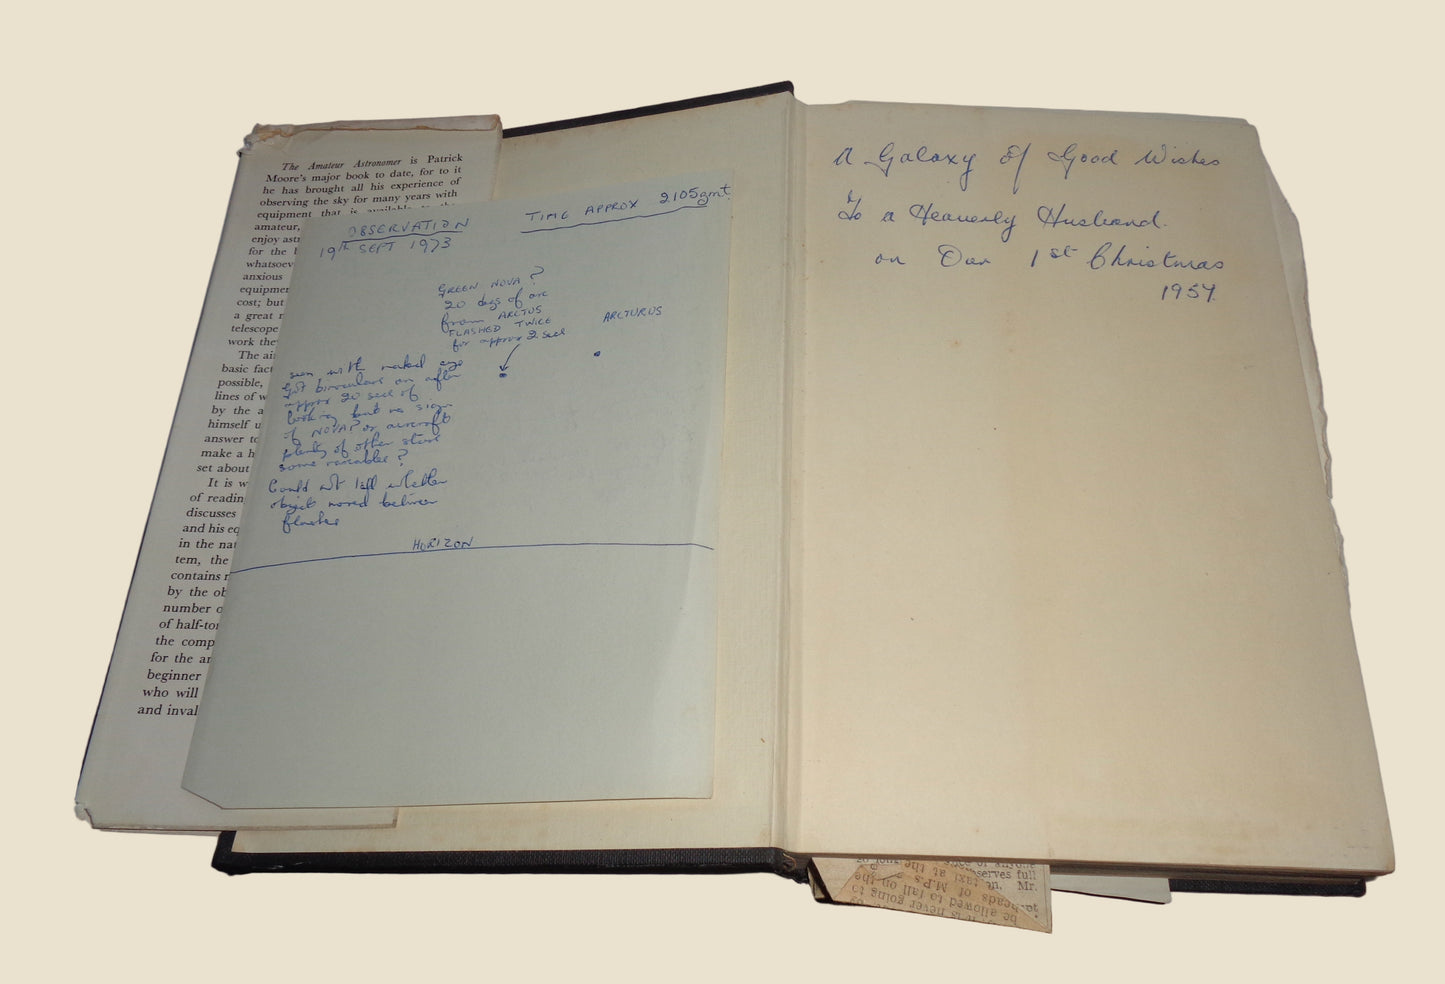 The Amateur Astronomer is Patrick
Moore's major book to date, for to it
he has brought all his experience of
observing the sky for many years with
equipment that is available to the
amateur,
enjoy ast
for the l
whatsoev
anxious
equipmer
cost; but
a great r
telescope
work they
The air
basic fact
possible,
lines of w
by the a
himself u
answer to
make a h
set about
It is w
of readin
discusses
and his eq
in the nat
tem, the
contains r
by the ob
number o
of half-tor
the comp
for the ar
beginner
who will
and inval
OBSERVATION
19th SEPT 1973
TIME APPROX 2105gmt.
GREEN NOVA?
20 degs of arc
from ARCTUS
FLASHED TWICE
for approx 2 secs
ARCTURUS
seen with naked eye
Got binoculars on after
approx 20 secs of
looking but no sign
of NOVA? or aircraft
plenty of other stars
some variables?
Could not tell whether
object moved between
flashes
HORIZON
A Galaxy of Good Wishes
To a Heavenly Husband.
on Our 1st Christmas
1957.
serves full
on, Mr.
be allowed to fall on the
heads of M.P.s
taxi at the
it is never going to